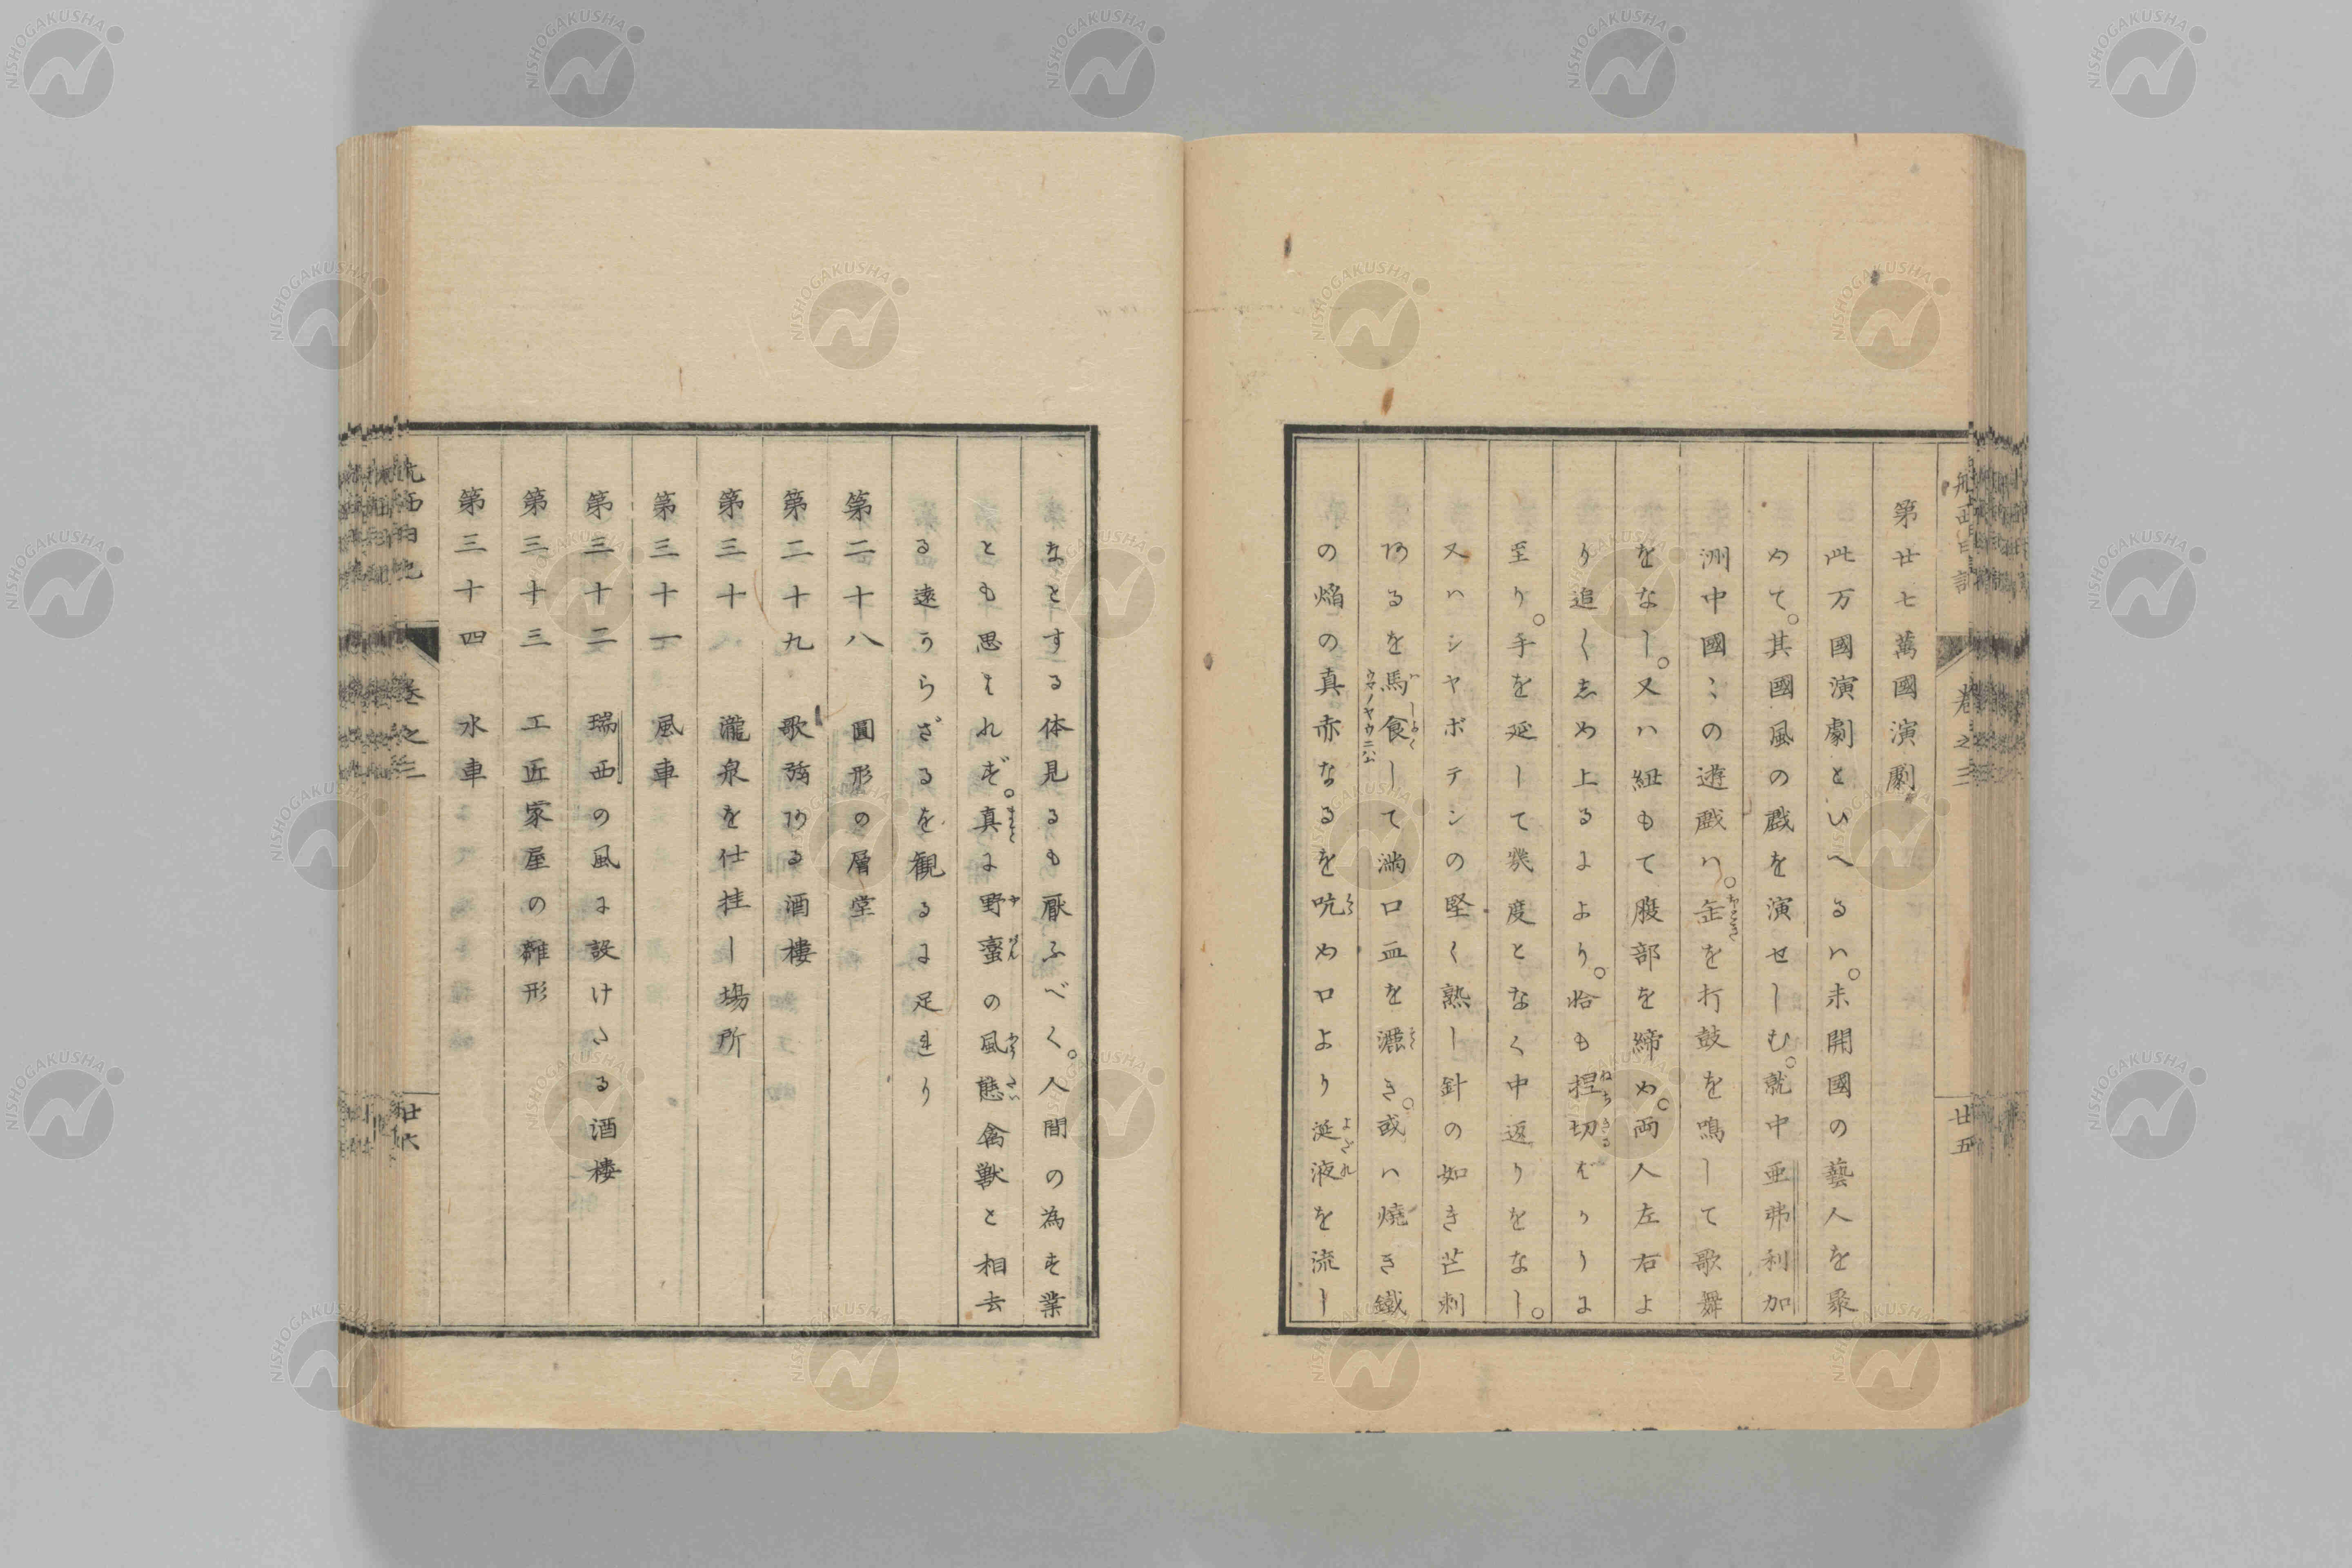 航西日記
卷之三
廿五
第廿七萬國演劇
此万國演劇といへるハ。未開國の藝人を聚
めて。其國風の戲を演せしむ。就中亜弗利加
洲中國〻の遊戲ハ。缶を打鼓を鳴して歌舞
をなし。又ハ紐もて腹部を締め。両人左右よ
り追〱志め上るによリ。恰も捏切ばかりに
至り。手を延して幾度となく中返りをなし。
又ハシヤボテンの堅く熟し針の如き芒刺
あるを馬食して満口血を灑き。或ハ燒き鐵
の焔の真赤なるを吭め口より涎液を流し
なとする体見るも厭ふべく。人間の為す業
とも思はれず。真に野蛮の風態禽獣と相去
る遠からざるを観るに足れり
第二十八　圓形の層堂
第二十九　歌謠ある酒樓
第三十　瀧泉を仕挂し場所
第三十一　風車
第三十二　瑞西の風に設けたる酒樓
第三十三　工匠家屋の雛形
第三十四　水車
航西日記
卷之三
廿六
NISHOGAKUSHA